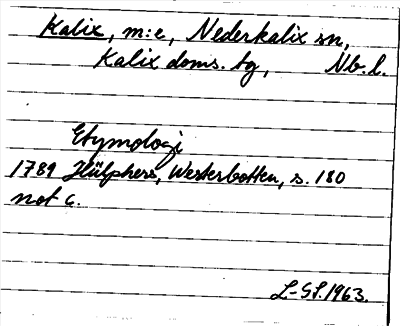 Kalix, m:e, Nederkalix sn,
Kalix doms. tg, Nb. l.
Etymologi
1789 Hülphers, Westerbotten, s. 180
not c.
L-St. 1963.